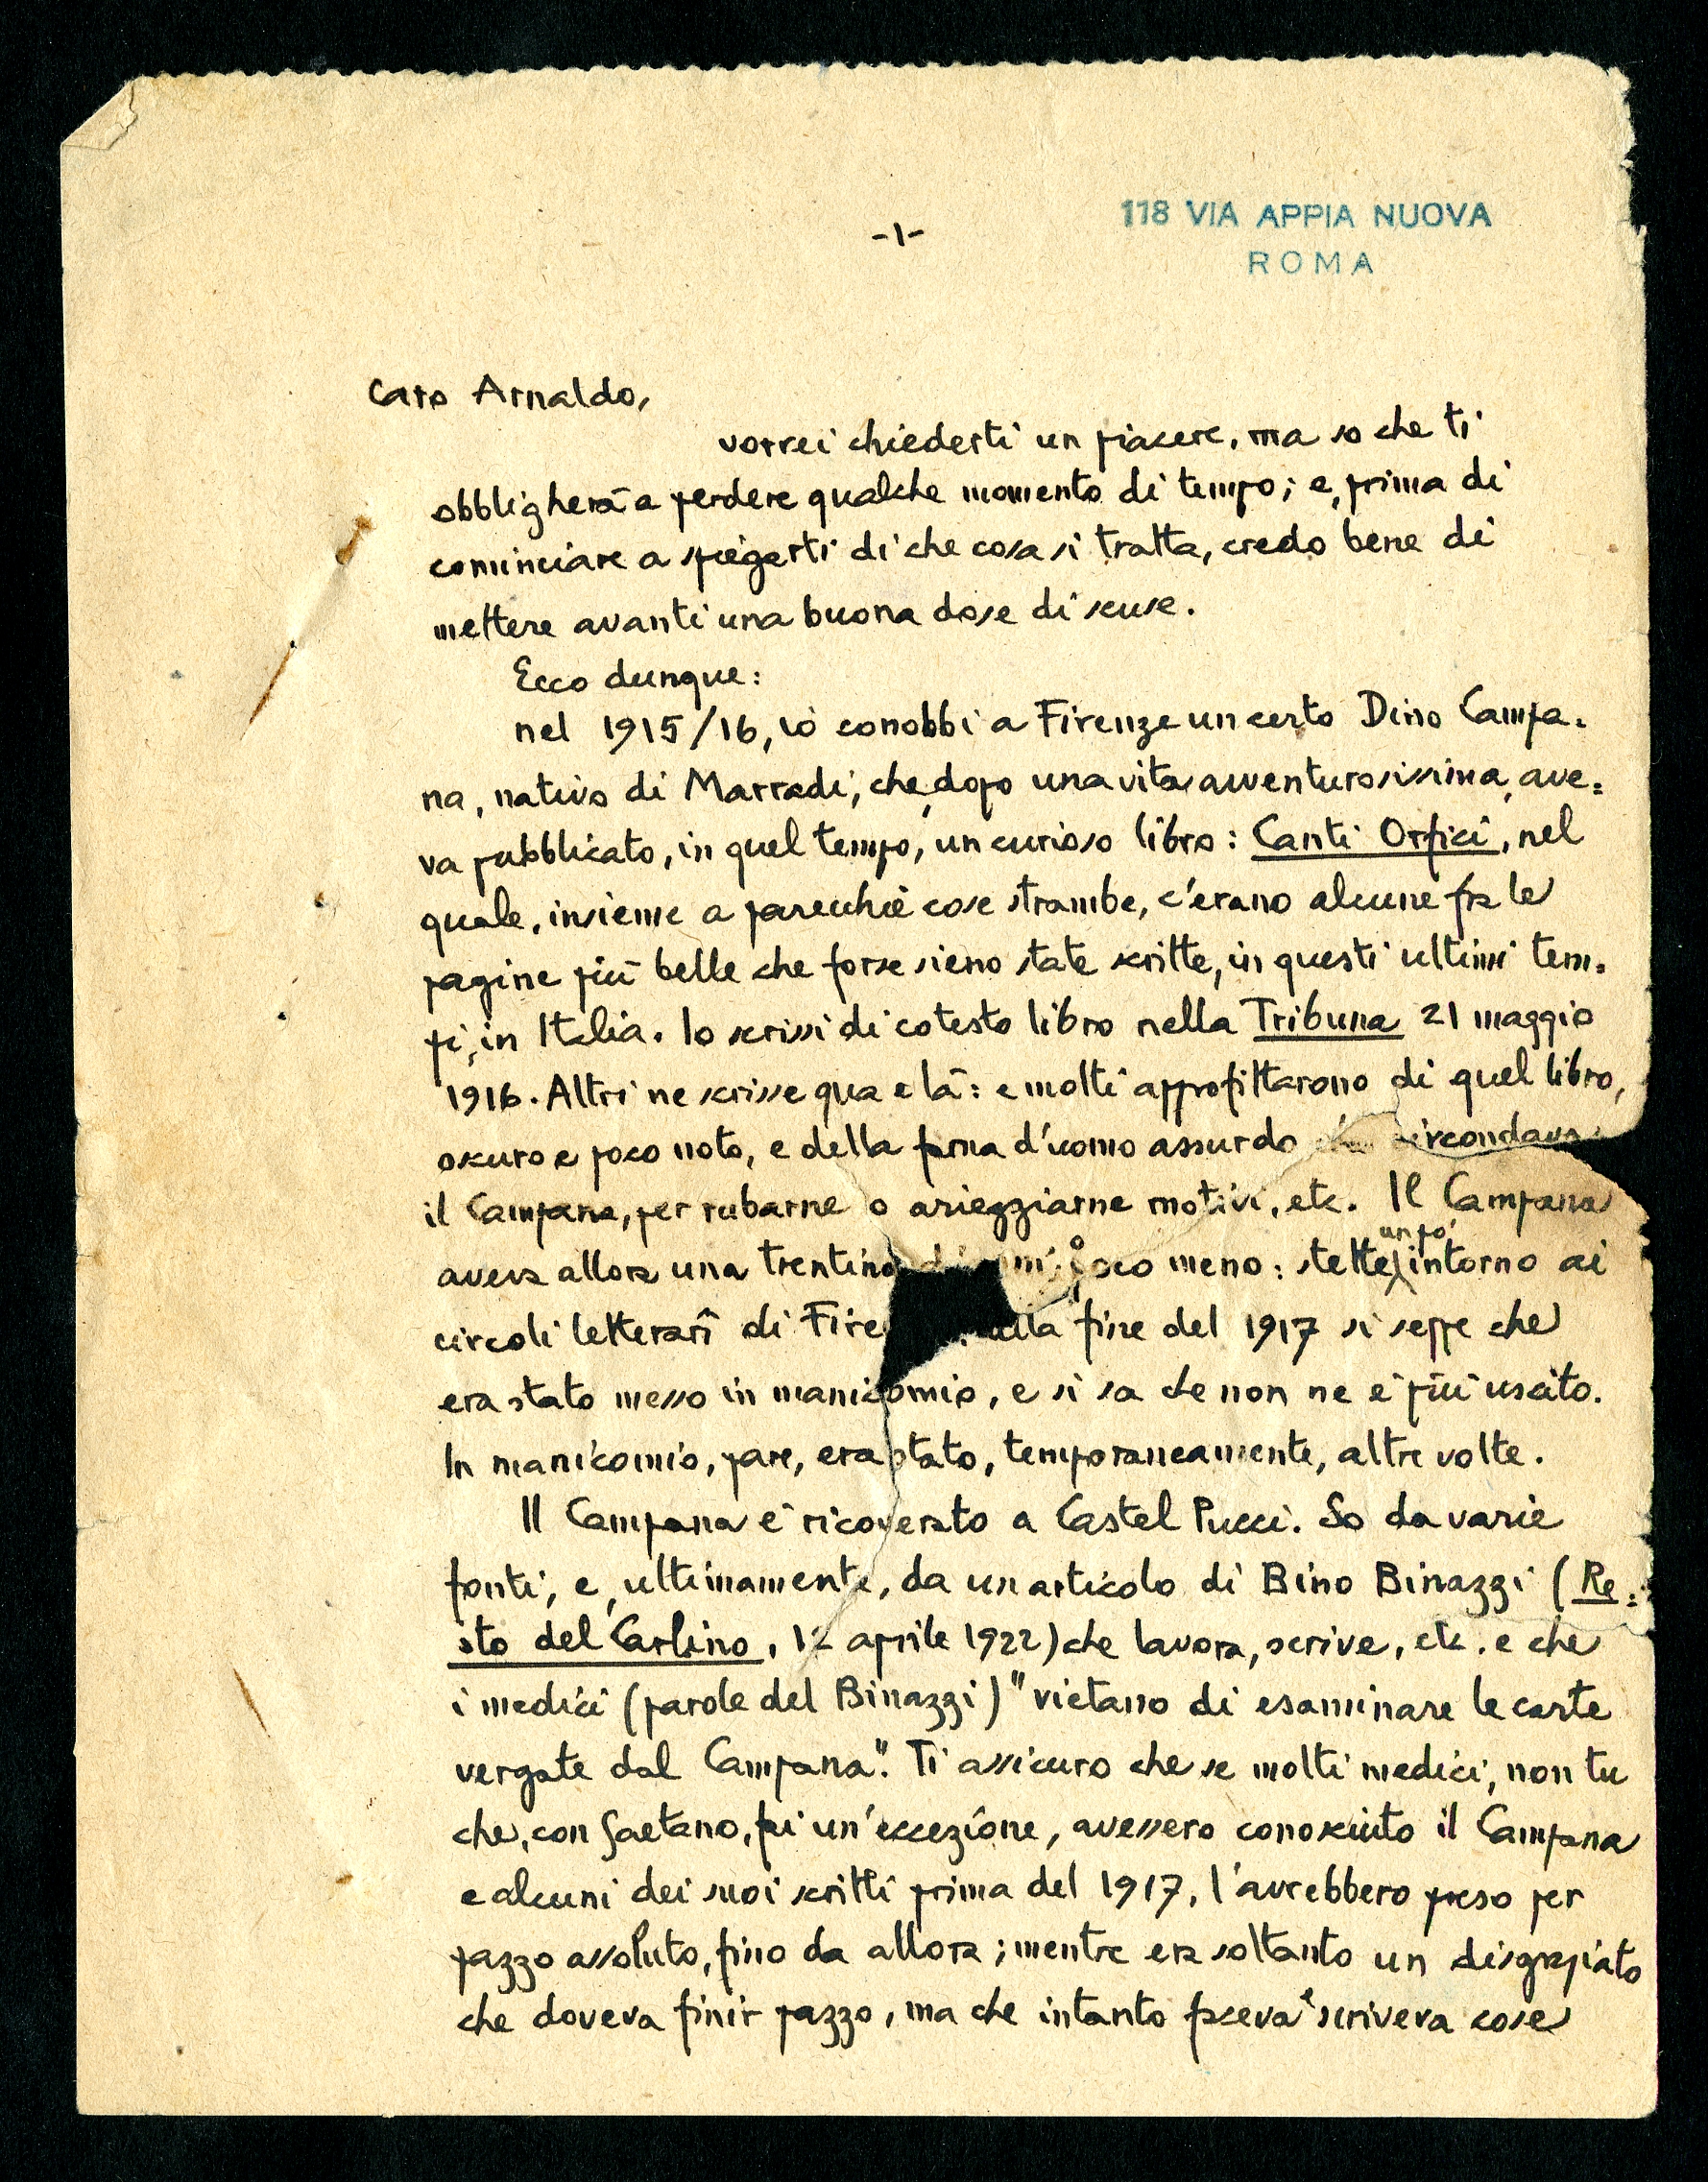 118 VIA APPIA NUOVA
ROMA
-1-
Caro Arnaldo,
vorrei chiederti un piacere, ma so che ti
obbligherà a perdere qualche momento di tempo; e, prima di
cominciare a spiegarti di che cosa si tratta, credo bene di
mettere avanti una buona dose di scuse.
Ecco dunque:
nel 1915/16, io conobbi a Firenze un certo Dino Campa=
na, nativo di Marradi, che, dopo una vita avventurosissima, ave=
va pubblicato, in quel tempo, un curioso libro: Canti Orfici, nel
quale, insieme a parecchie cose strambe, c'erano alcune fra le
pagine più belle che forse sieno state scritte, in questi ultimi tem=
pi, in Italia. Io scrissi di cotesto libro nella Tribuna 21 maggio
1916. Altri ne scrisse qua e là: e molti approfittarono di quel libro,
oscuro e poco noto, e della fama d'uomo assurdo circondava
il Campana, per rubarne o arieggiarne motivi, etc. Il Campana
aveva allora una trentina poco meno: stette un po' intorno ai
circoli letterarî di fine del 1917 si seppe che
era stato messo in manicomio, e si sa che non ne è più uscito.
In manicomio, pare, era stato, temporaneamente, altre volte.
Il Campana è ricoverato a Castel Pucci. So da varie
fonti, e, ultimamente, da un articolo di Bino Binazzi (Re=
sto del Carlino, 12 aprile 1922) che lavora, scrive, etc. e che
i medici (parole del Binazzi) "vietano di esaminare le carte
vergate dal Campana". Ti assicuro che se molti medici, non tu
che, con Gaetano, fai un'eccezione, avessero conosciuto il Campana
e alcuni dei suoi scritti prima del 1917, l'avrebbero preso per
pazzo assoluto, fino da allora; mentre era soltanto un disgraziato
che doveva finir pazzo, ma che intanto faceva e scriveva cose